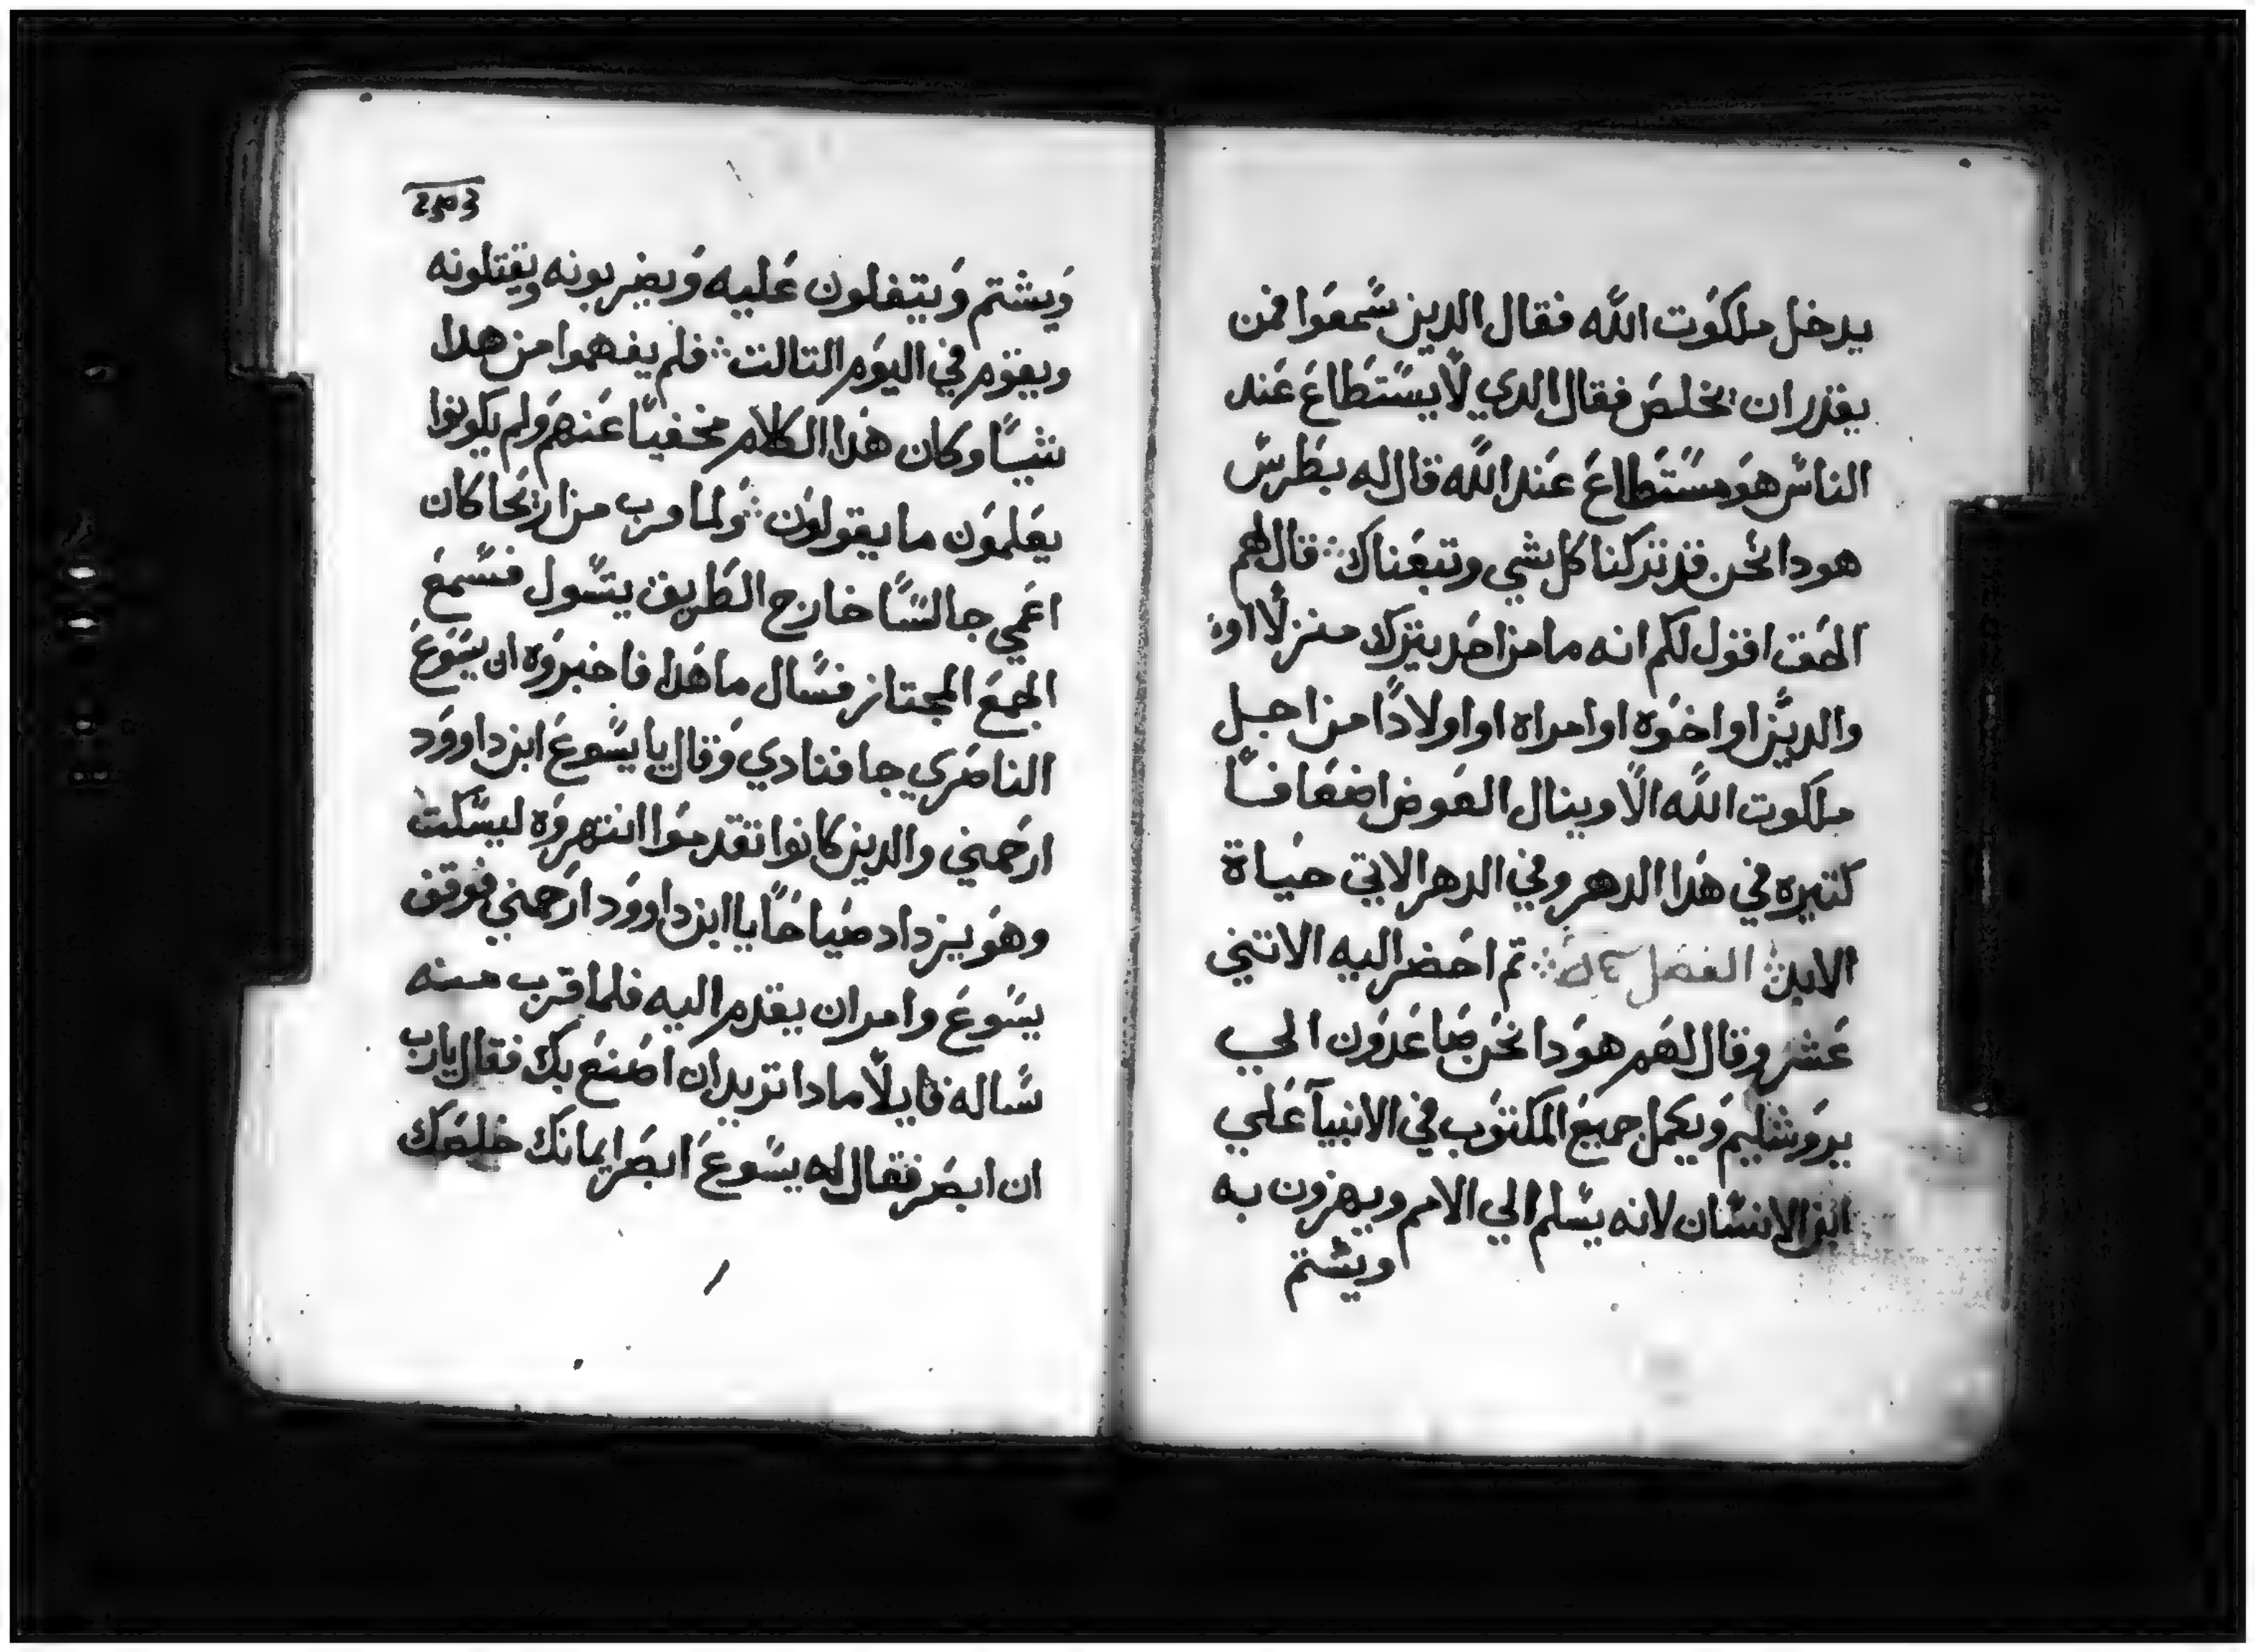 يدخل ملكوت الله فقال الدين سمعوا فمن
يقدر ان يخلص فقال الدي لا يستطاع عند
الناس هو مستطاع عند الله قال له بطرس
هودا نحن قد تركنا كل شي وتبعناك قال لهم
الحق اقول لكم انه ما من احد يترك منزلا او
والدين او اخوه او امراه او اولادا من اجل
ملكوت الله الا وينال العوض اضعافا
كتيره في هدا الدهر وفي الدهر الاتي حياة
الابد الفصل تم احضر اليه الاتني
عشر وقال لهم هودا نحن صاعدون الي
يروشليم ويكمل جميع المكتوب في الانبيا علي
ابن الانسان لانه يسلم الي الامم ويهزون به
ويشتم
ويشتم ويتفلون عليه ويضربونه ويقتلونه
ويقوم في اليوم التالت فلم يفهموا من هدا
شيا وكان هدا الكلام مخفيا عنهم ولم يكونوا
يعلمون ما يقولون ولما قرب من اريحا كان
اعمي جالسا خارج الطريق يتسول فسمع
الجمع المجتاز فسال ما هدا فاخبروه ان يسوع
الناصري جا فنادي وقال يا يسوع ابن داوود
ارحمني والدين كانوا تقدموا انتهروه ليسكت
وهو يزداد صياحا يا ابن داوود ارحمني فوقف
يسوع وامر ان يقدم اليه فلما قرب منه
ساله قايلا مادا تريد ان اصنع بك فقال يارب
ان ابصر فقال له يسوع ابصر ايمانك خلصك